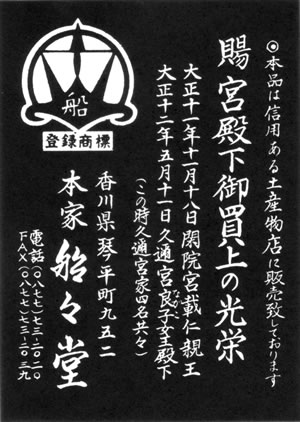 ◉本品は信用ある土産物店に販売致しております
賜 宮殿下御買上の光栄
大正十一年十一月十八日 閑院宮載仁親王
大正十二年五月十一日 久邇宮良子女王殿下
ながこ
(この時久邇宮家四名共々)
香川県琴平町九五二
本家 船々堂
電話(〇八七七)七三-二〇二〇
FAX(〇八七七)七三-二〇三九
船
登録商標